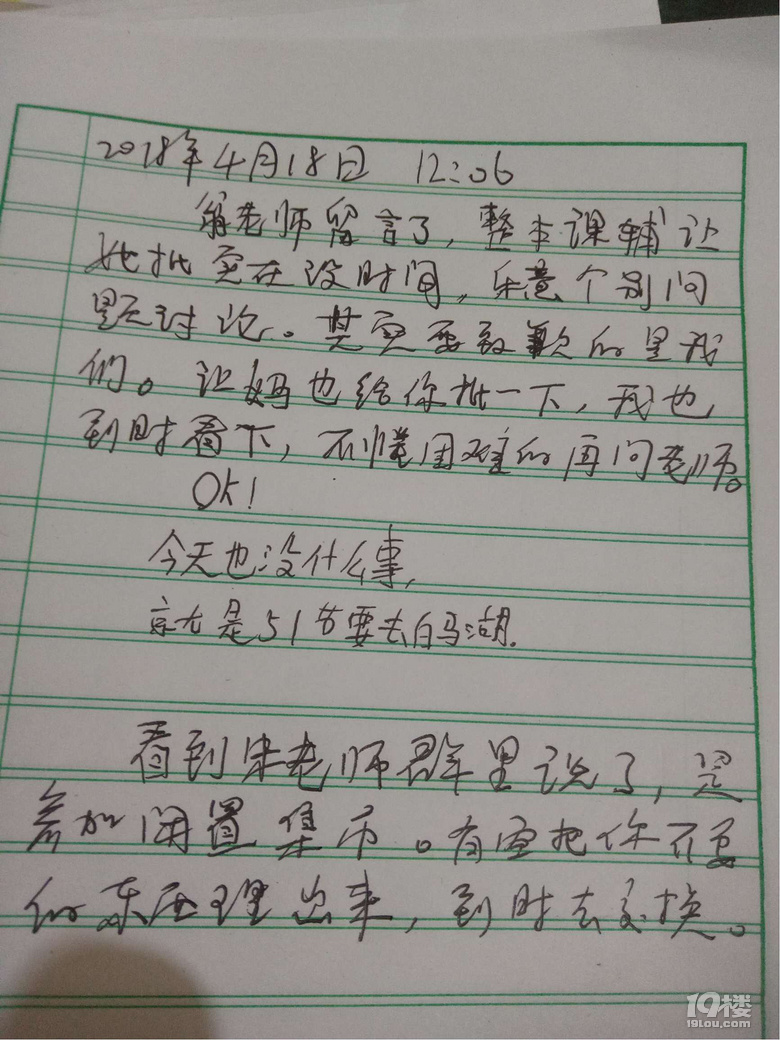 2018年4月18日 12:06
翁老师留言了,整本课辅让
她批实在没时间,乐意个别问
题讨论。其实要致歉的是我
们。让妈也给你批一下,我也
到时看下,不懂困难的再问老师。
OK!
今天也没什么事,
就是51节要去白马湖.
看到朱老师群里说了,是
参加闲置集市。有空把你不要
的东西理出来,到时去交换。
19楼
19lou.com